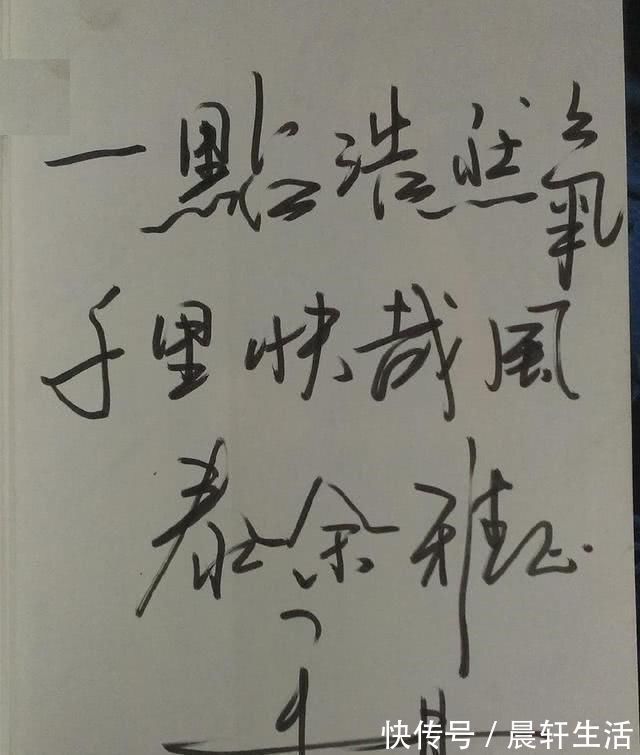 一點浩然氣
千里快哉風
春余雅正
快传号 / 晨轩生活